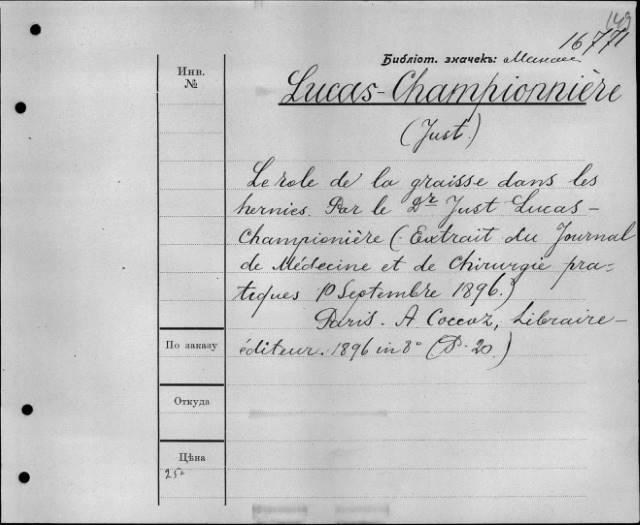 149
16771
Библіот. значекъ:
Инв.
№
Lucas-Championnière
(Just.)
Le role de la graisse dans les
hernies. Par le Dr Just Lucas-
Championière (Extrait du Journal
de Médecine et de Chirurgie pra-
tiques 10 Septembre 1896.)
Paris. A Coccoz, Libraire-
éditeur. 1896 in 8° (P. 20.)
По заказу
Откуда
Цѣна